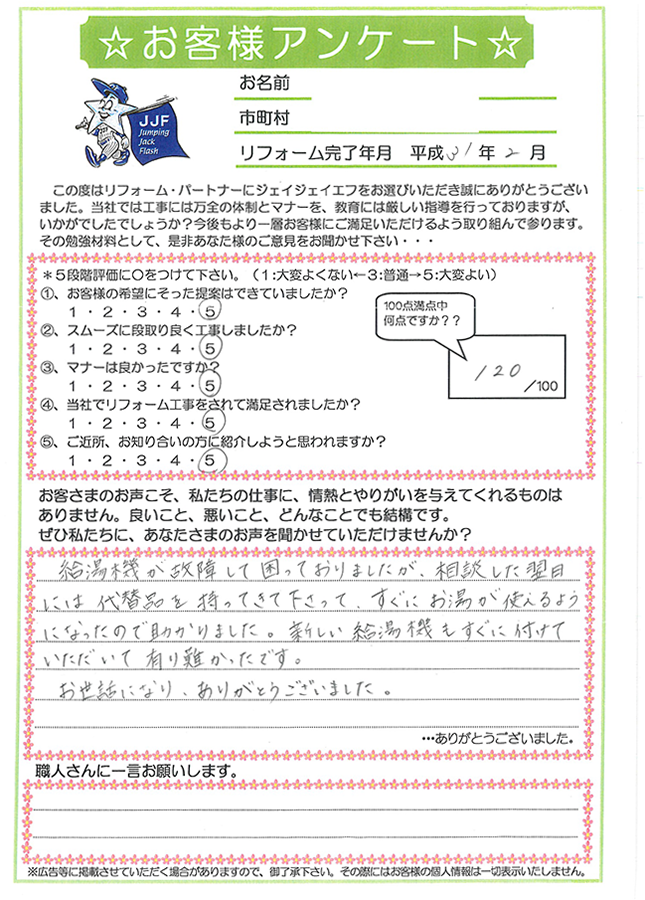 ☆お客様アンケート☆
JJF
Jumping
Jack
Flash
お名前
市町村
リフォーム完了年月　平成31年2月
この度はリフォーム・パートナーにジェイジェイエフをお選びいただき誠にありがとうござい
ました。当社では工事には万全の体制とマナーを、教育には厳しい指導を行っておりますが、
いかがでしたでしょうか？今後もより一層お客様にご満足いただけるよう取り組んで参ります。
その勉強材料として、是非あなた様のご意見をお聞かせ下さい・・・
＊５段階評価に〇をつけて下さい。（１:大変よくない←３:普通→５:大変よい）
①、お客様の希望にそった提案はできていましたか？
１・２・３・４・５
②、スムーズに段取り良く工事しましたか？
１・２・３・４・５
③、マナーは良かったですか？
１・２・３・４・５
④、当社でリフォーム工事をされて満足されましたか？
１・２・３・４・５
⑤、ご近所、お知り合いの方に紹介しようと思われますか？
１・２・３・４・５
100点満点中
何点ですか？？
120
/100
お客さまのお声こそ、私たちの仕事に、情熱とやりがいを与えてくれるものは
ありません。良いこと、悪いこと、どんなことでも結構です。
ぜひ私たちに、あなたさまのお声を聞かせていただけませんか？
給湯機が故障して困っておりましたが、相談した翌日
には代替品を持ってきて下さって、すぐにお湯が使えるよう
になったので助かりました。新しい給湯機もすぐに付けて
いただいて有り難かったです。
お世話になり、ありがとうございました。
…ありがとうございました。
職人さんに一言お願いします。
※広告等に掲載させていただく場合がありますので、御了承下さい。その際にはお客様の個人情報は一切表示いたしません。